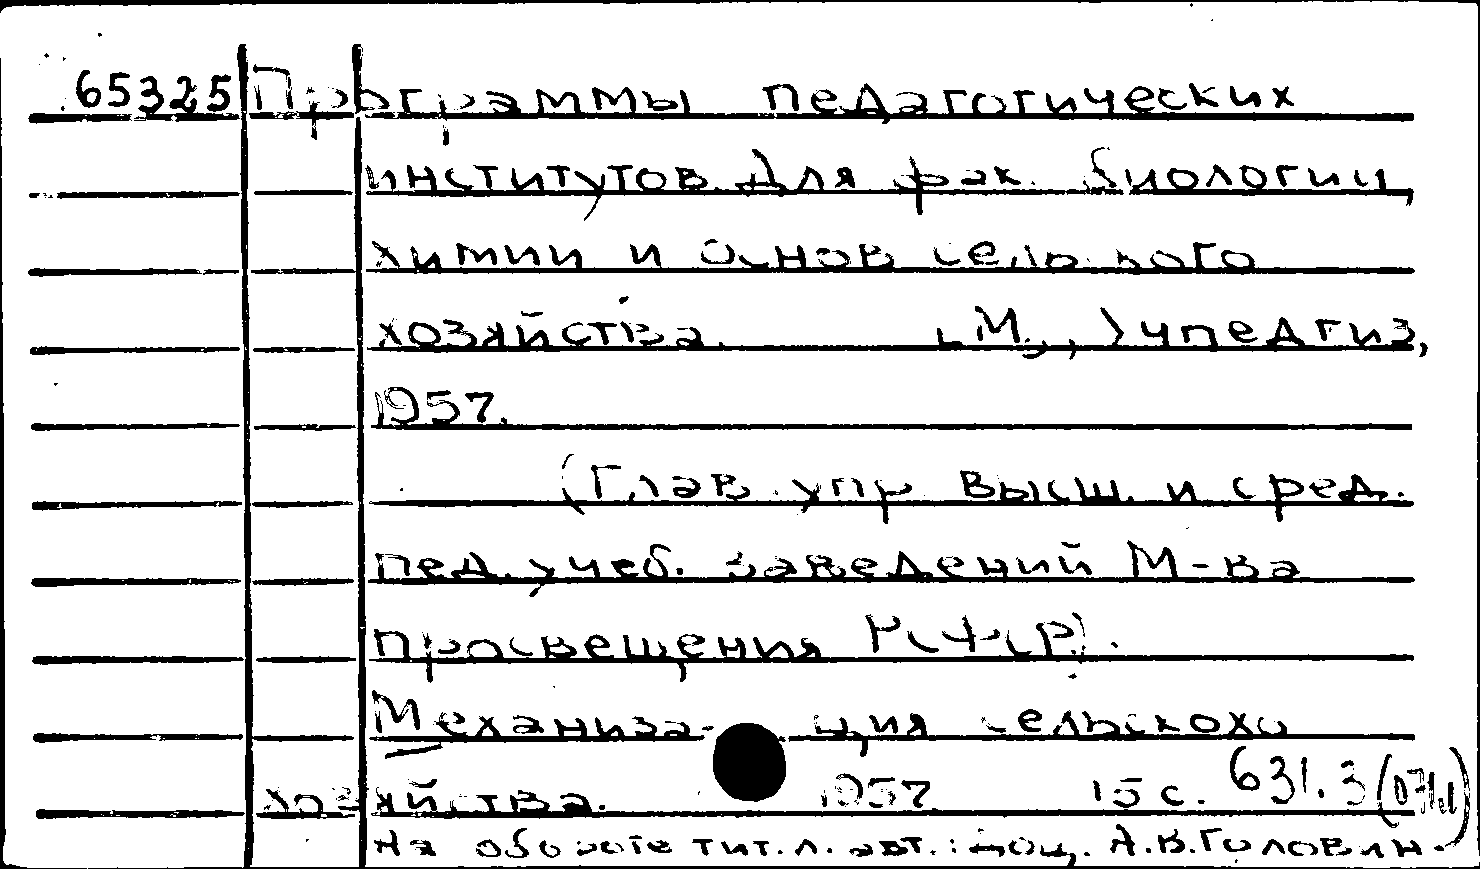 65325 Программы педагогических
институтов. Для фак. биологии,
химии и основ сельского
хозяйства. М., Учпедгиз,
1957.
(Глав. упр. высш. и сред.
пед. учеб. заведений М-ва
просвещения РСФСР).
Механизация сельскохо
хозяйства. 1957. 15 с. 631.3(071.1)
На обороте тит. л. авт.: доц. А.В.Головин.